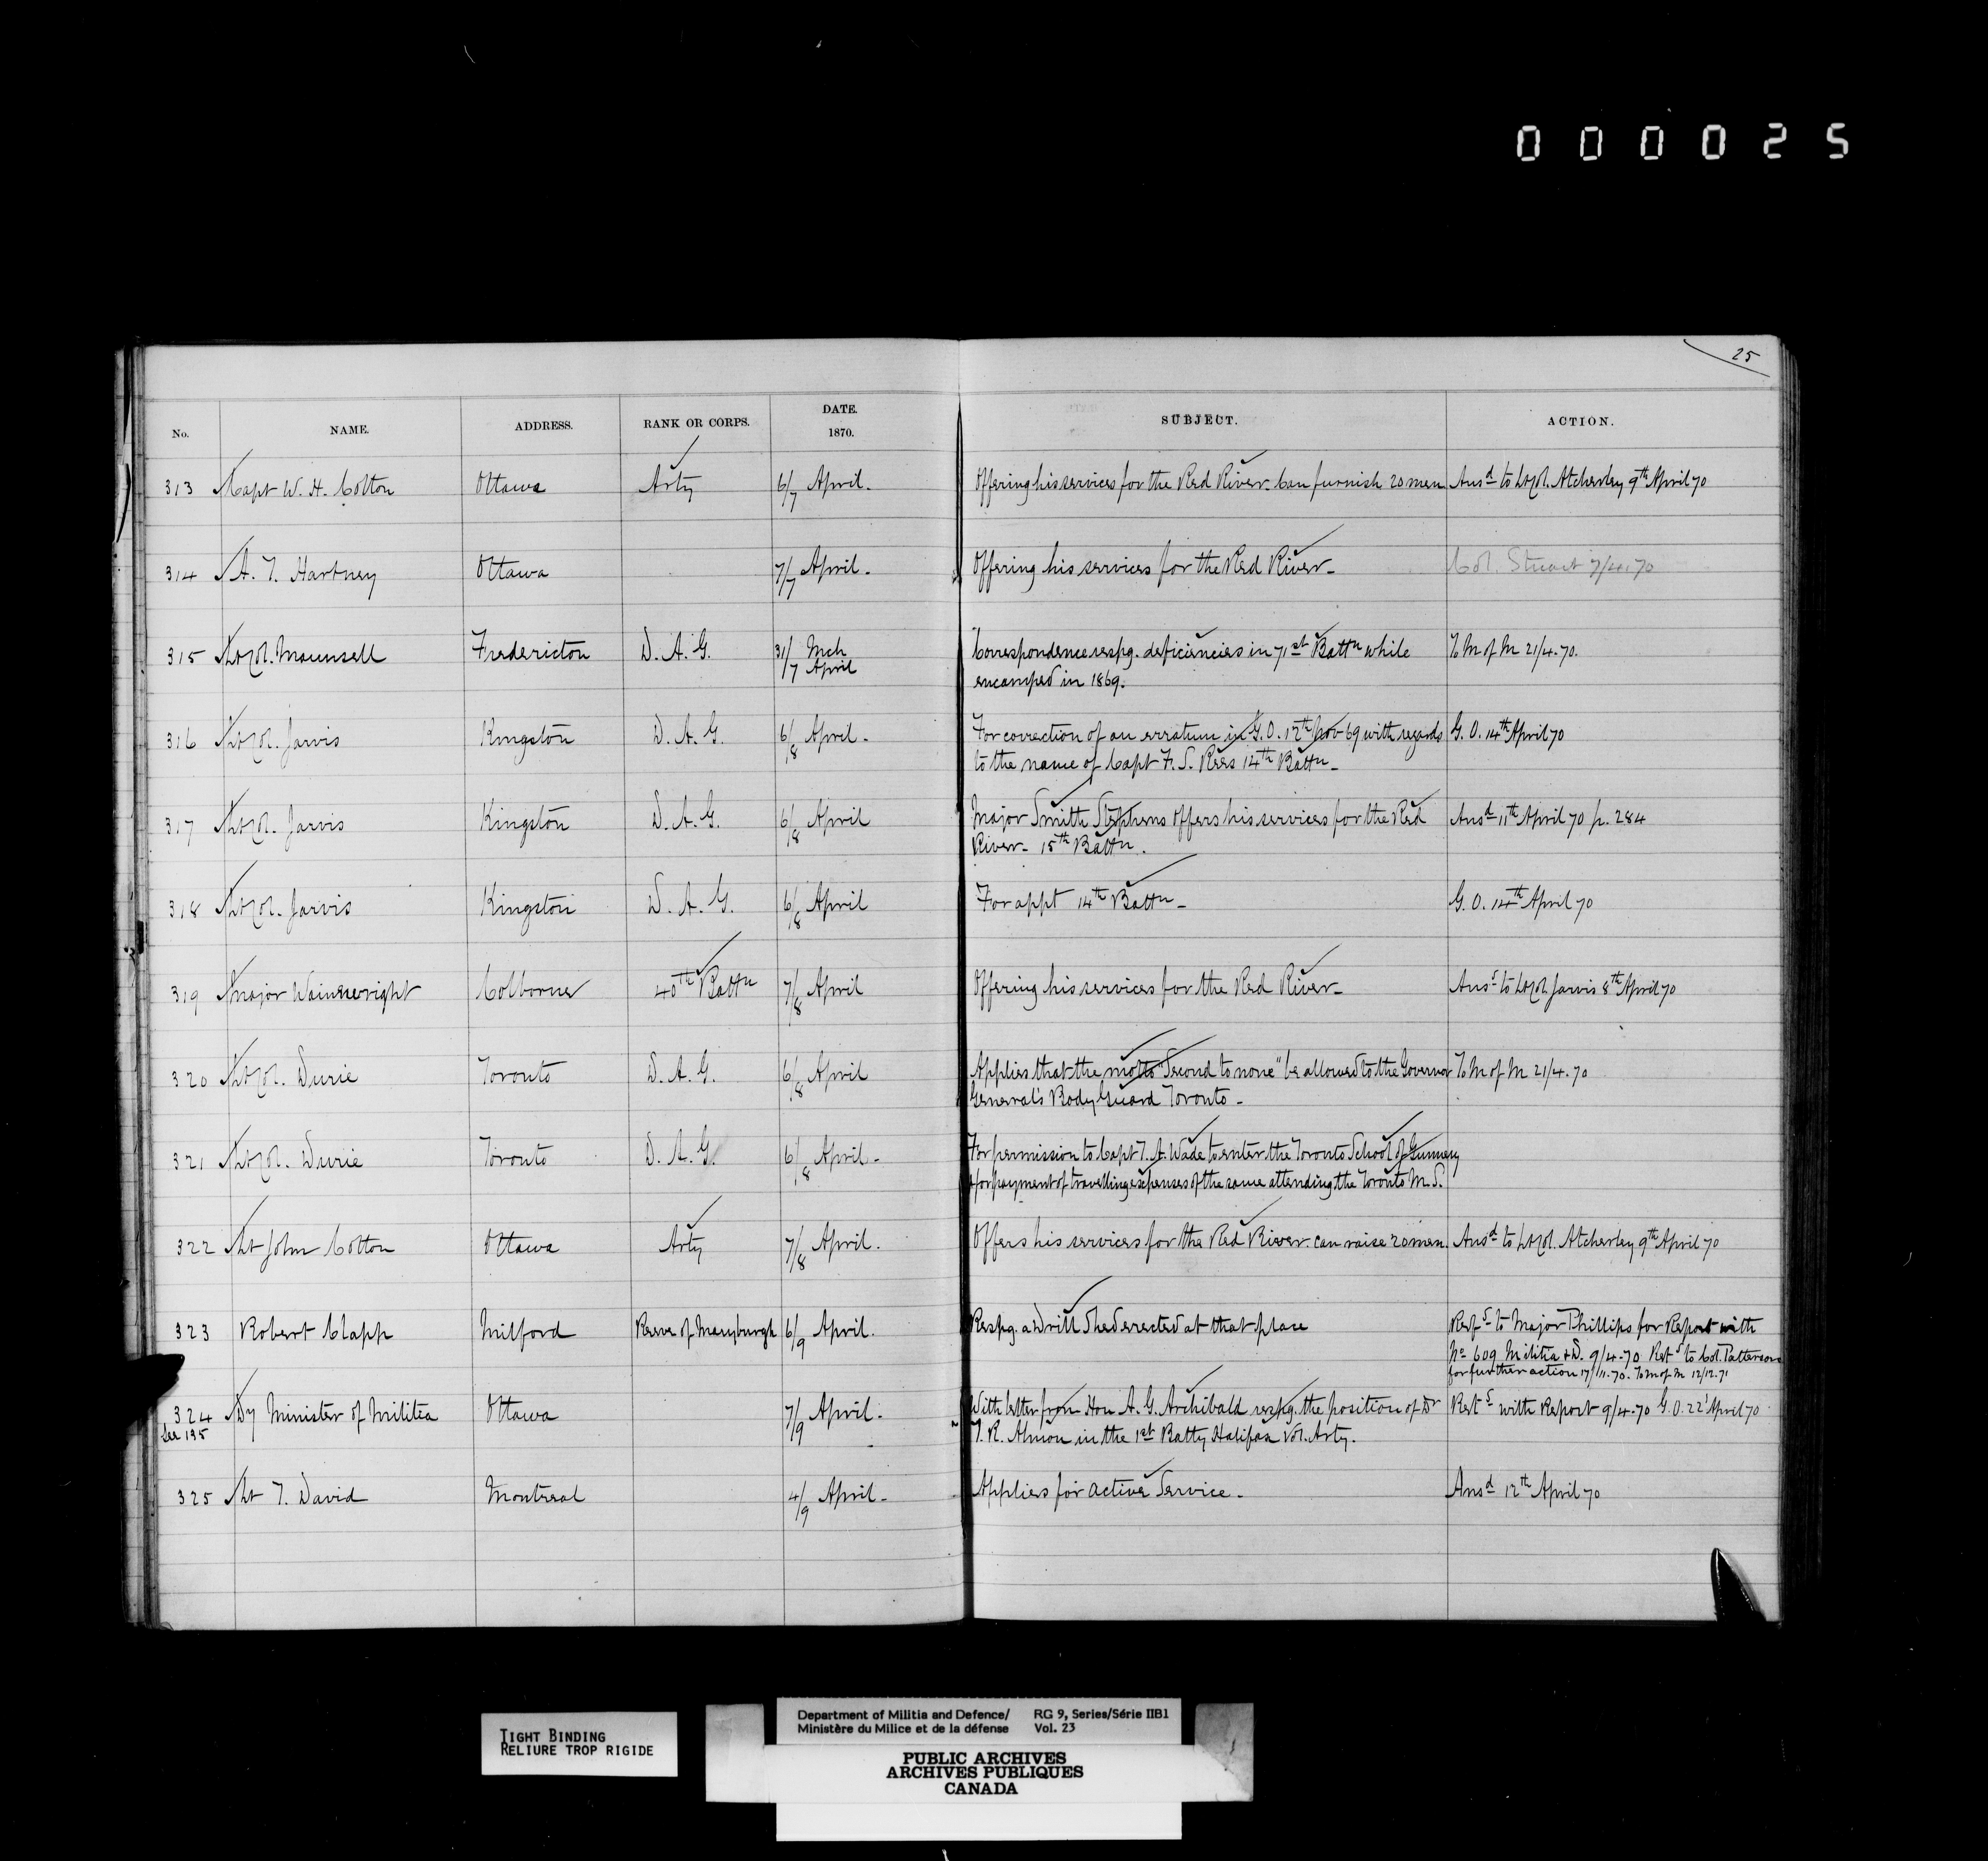 000025
25
No. NAME. ADDRESS. RANK OR CORPS. DATE. 1870. SUBJECT. ACTION.
313 Capt W. H. Cotton Ottawa Arty 6/7 April. Offering his services for the Red River. Can furnish 20 men Ansd to Lt Col. Atcherley 9th April 70
314 A. T. Hartney Ottawa 7/7 April. Offering his services for the Red River Col. Stuart 7/4.70
315 Lt Col. Maunsell Fredericton D. A. G. 31/ Mch /7 April Correspondence respg. deficiencies in 71st Battn while To M of M 21/4.70.
encamped in 1869.
316 Lt Col. Jarvis Kingston D. A. G. 6/8 April For correction of an erratum in G.O. 12th Nov 69 with regards G. O. 14th April 70
to the name of Capt F. S. Rees 14th Battn
317 Lt Col. Jarvis Kingston D. A. G. 6/8 April Major Smith Stephens offers his services for the Red Ansd 11th April 70 p. 284
River 15th Battn.
318 Lt Col. Jarvis Kingston D. A. G. 6/8 April For appt 14th Battn G. O. 14th April 70
319 Major Wainewright Colborne 40th Battn 7/8 April Offering his services for the Red River Ansd to Lt Col. Jarvis 8th April 70
320 Lt Col. Durie Toronto D. A. G. 6/8 April Applies that the motto "Second to none" be allowed to the Governor To M of M 21/4.70
General's Body Guard Toronto
321 Lt Col. Durie Toronto D. A. G. 6/8 April For permission to Capt T. A. Wade to enter the Toronto School of Gunnery
& for payment of travelling expenses of the same attending the Toronto M. S.
322 Lt John Cotton Ottawa Arty 7/8 April. Offers his services for the Red River. can raise 20 men. Ansd to Lt Col. Atcherley 9th April 70
323 Robert Clapp Milford Reeve of Marysburgh 6/9 April. Respg. a Drill Shed erected at that place Refd to Major Phillips for Report with
No 609 Militia & D. 9/4.70 Retd to Col. Patterson
for further action 17/11.70. To M of M 12/12.71
324 Dy Minister of Militia Ottawa 7/9 April. With letter from Hon A. G. Archibald respg. the position of Dr Retd with Report 9/4.70 G. O. 22 April 70
See 195 T. R. Almon in the 1st Batty Halifax Vol. Arty.
325 Lt T. David Montreal 4/9 April Applies for active Service. Ansd 12th April 70
TIGHT BINDING
RELIURE TROP RIGIDE
Department of Militia and Defence/ RG 9, Series/Série IIB1
Ministère du Milice et de la défense Vol. 23
PUBLIC ARCHIVES
ARCHIVES PUBLIQUES
CANADA